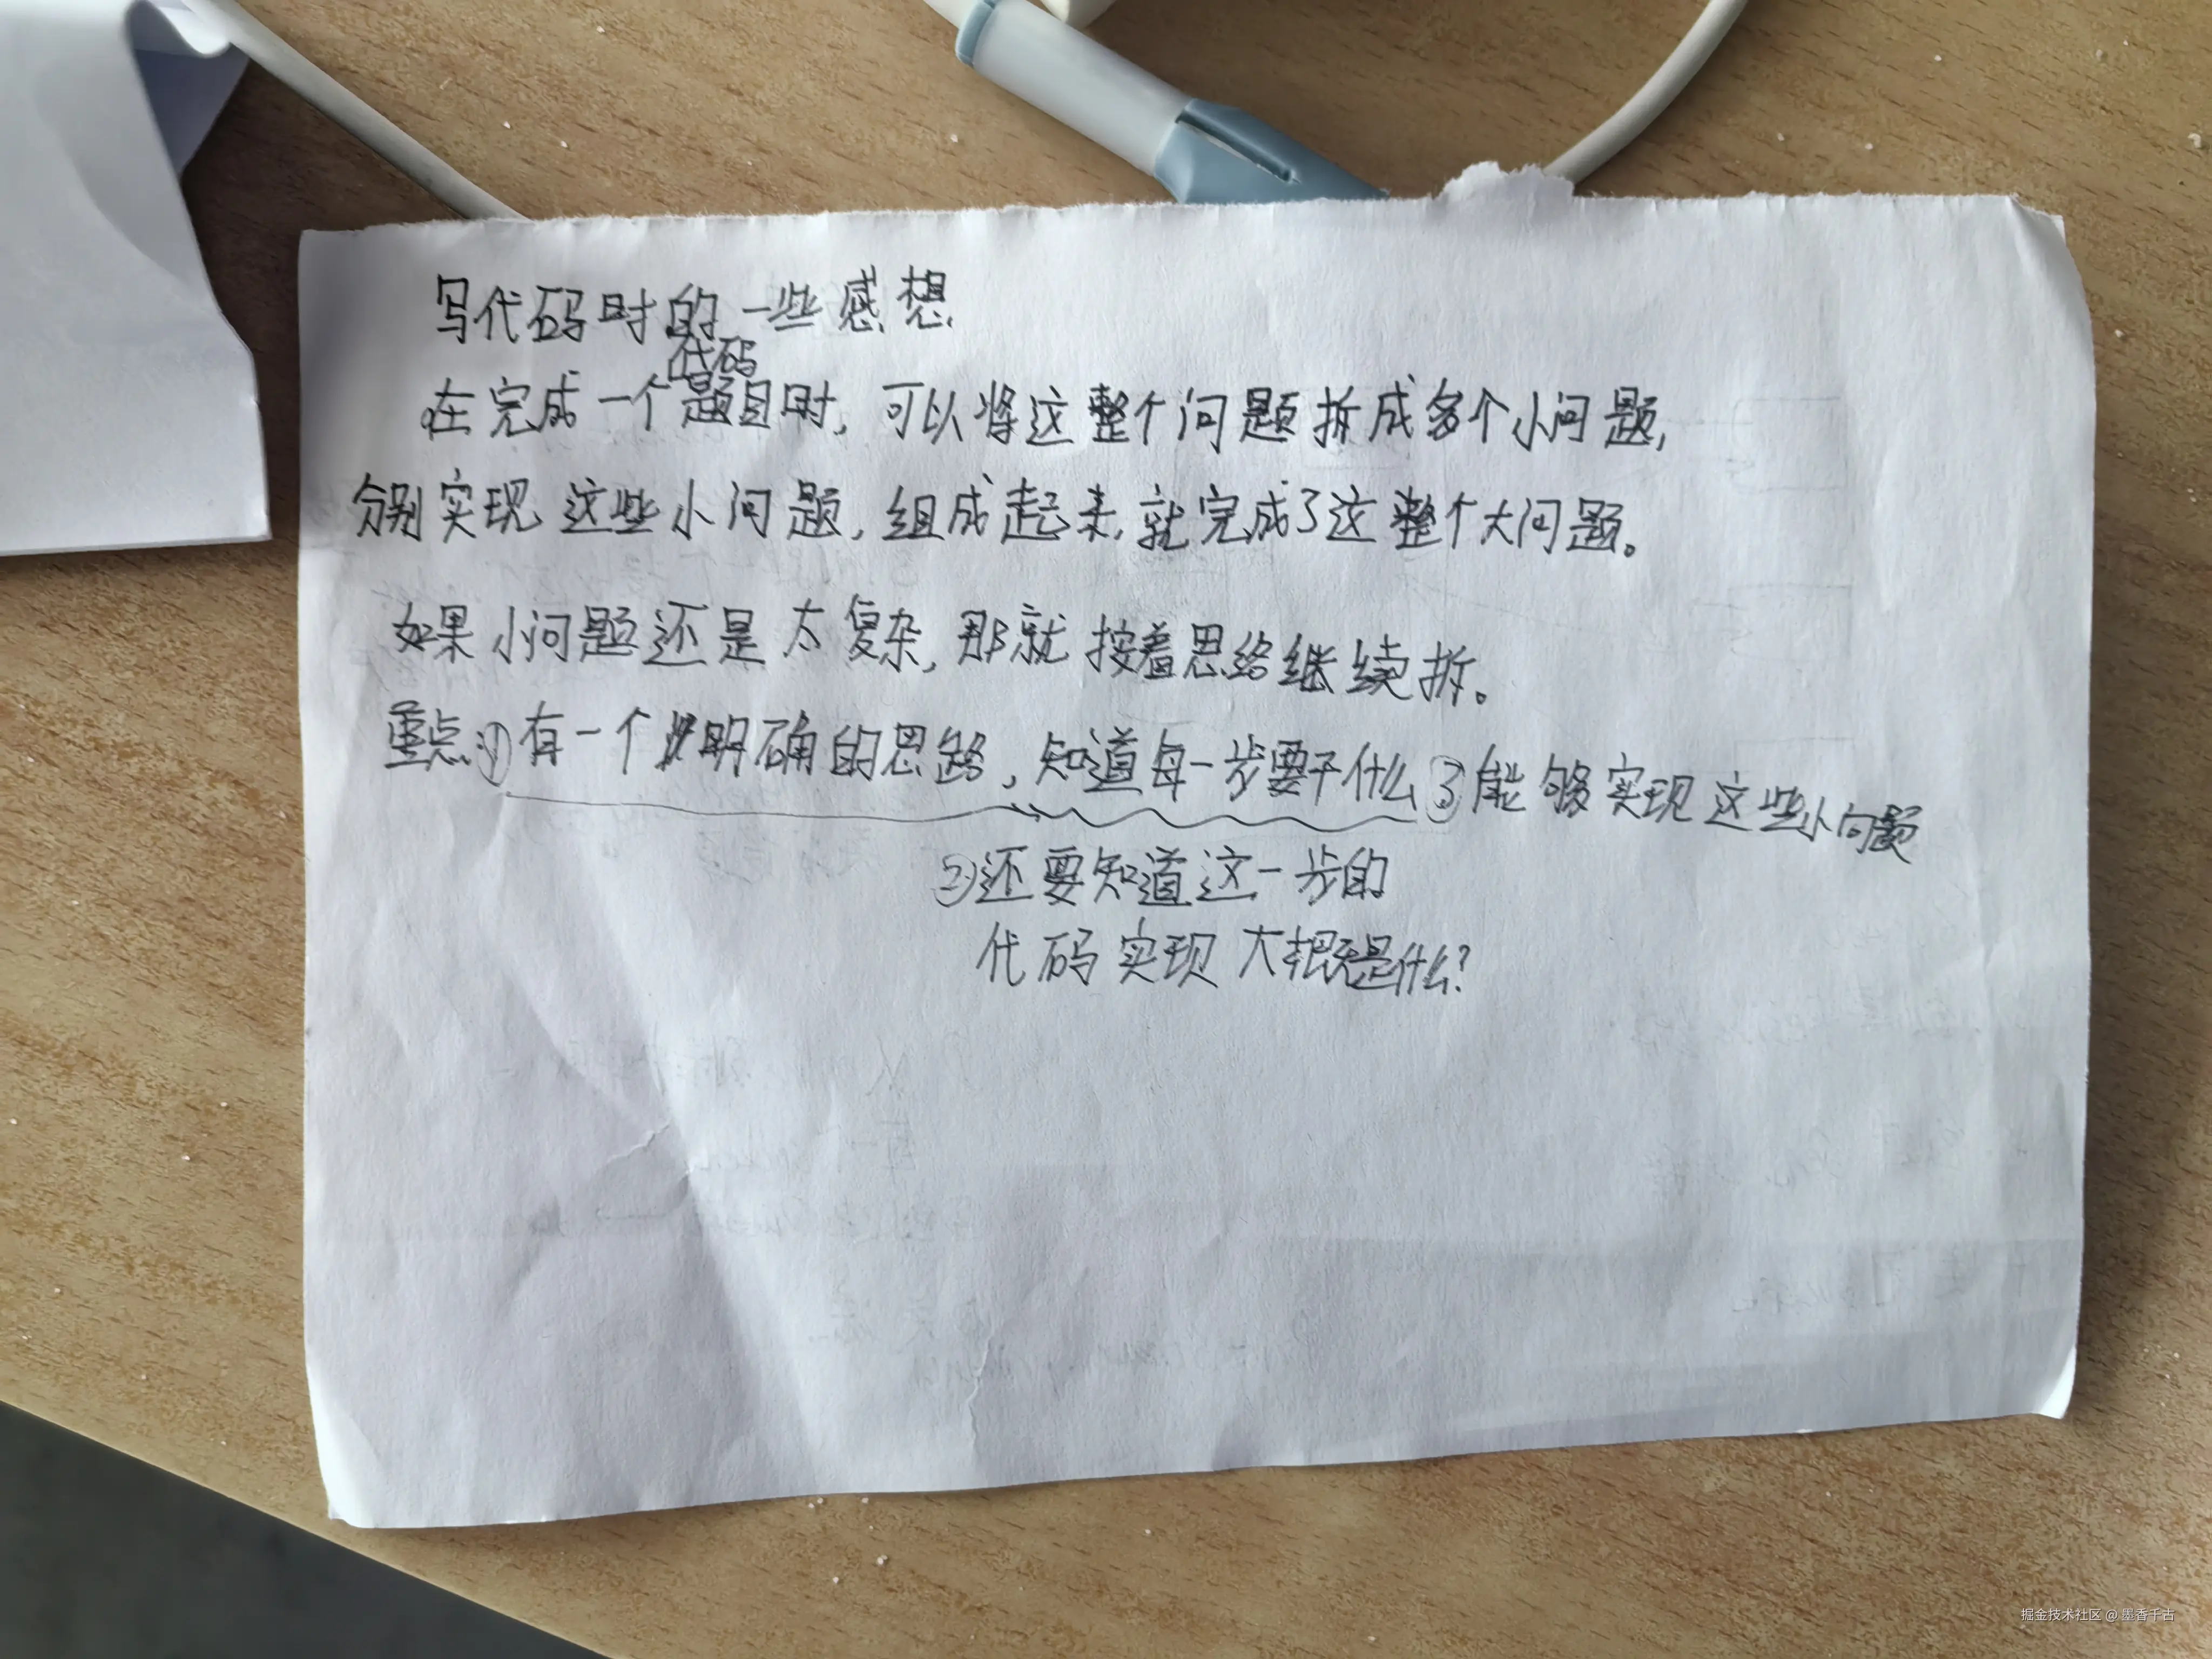 写代码时的一些感想
代码
在完成一个题目时,可以将这整个问题拆成多个小问题,
分别实现这些小问题,组成起来,就完成了这整个大问题。
如果小问题还是太复杂,那就按着思络继续拆。
重点:①有一个明确的思路,知道每一步要干什么③能够实现这些小问题
②还要知道这一步的
代码实现大概是什么?
掘金技术社区 @ 墨香千古